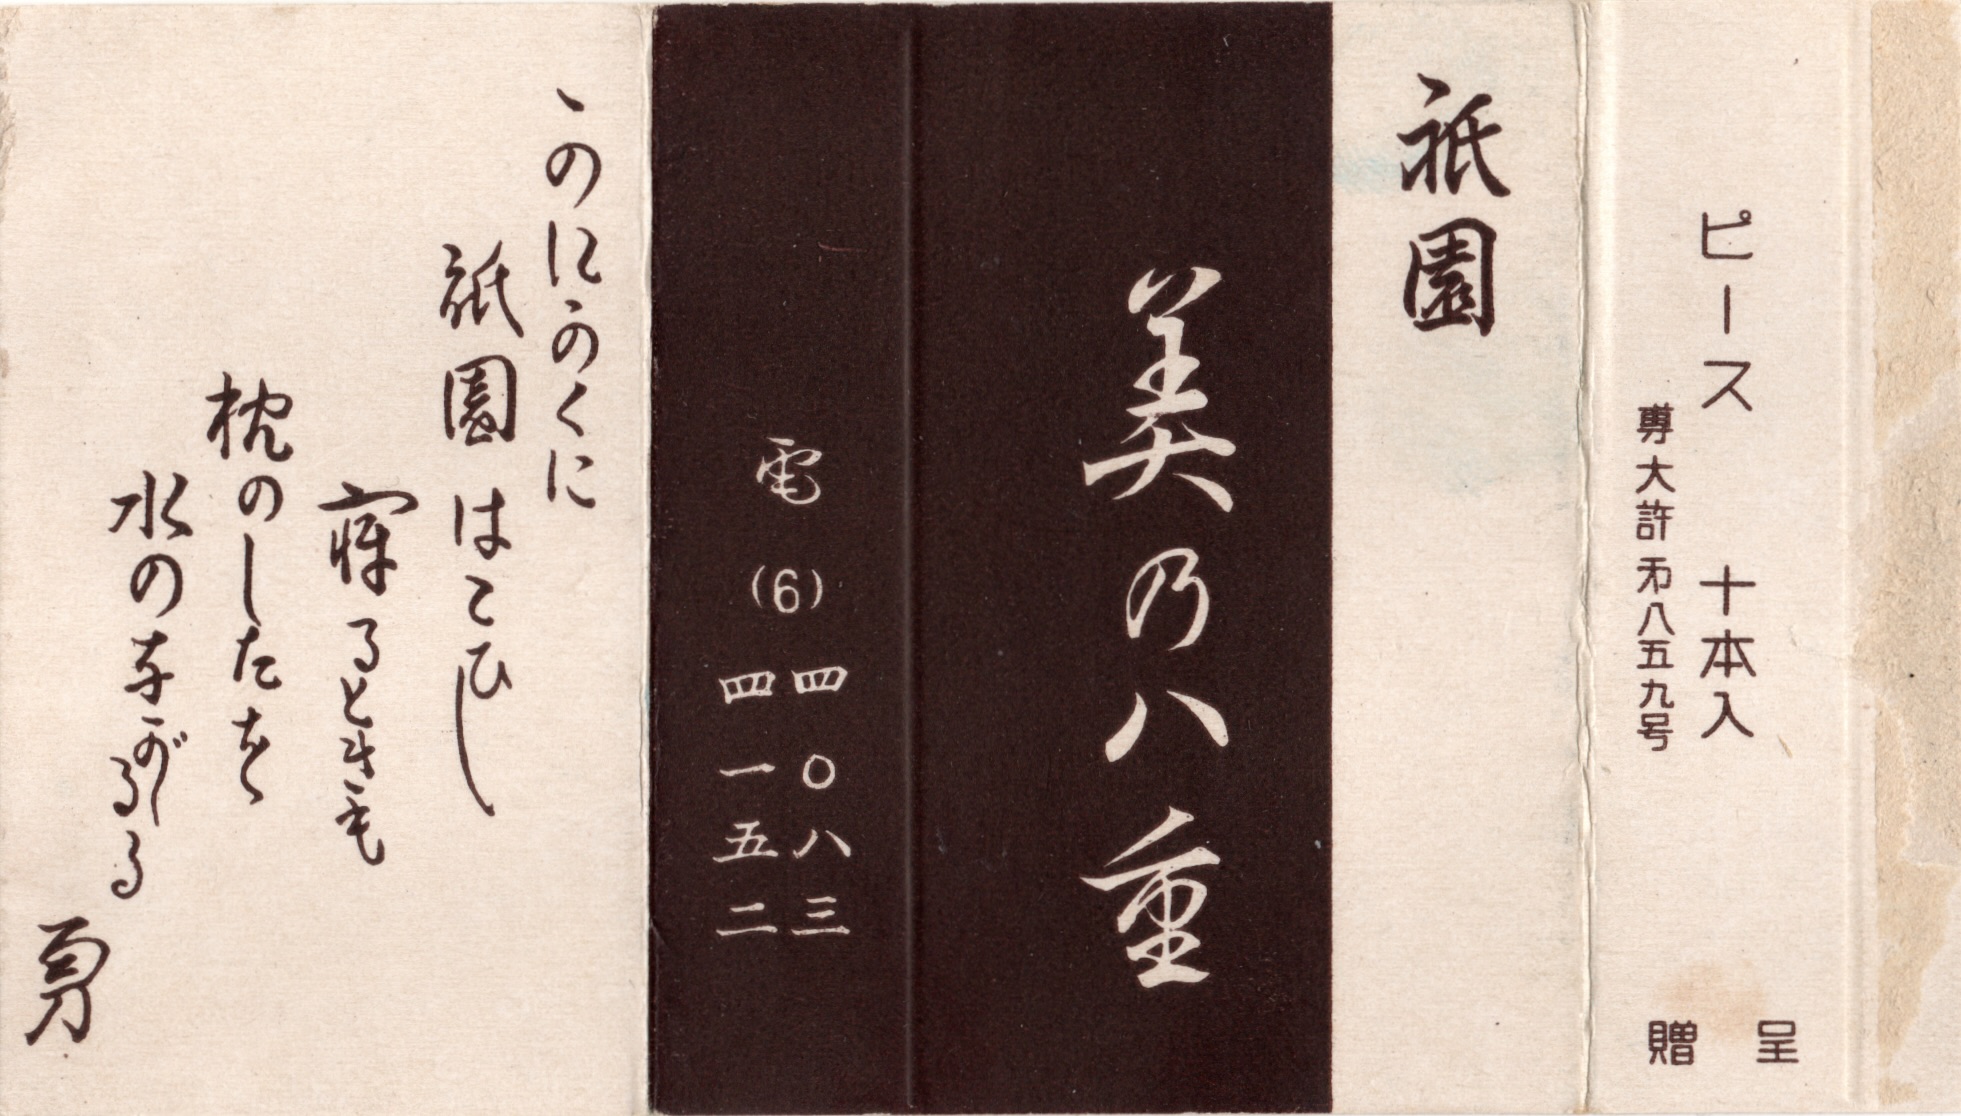 ピース 十本入
専大許㐧八五九号
贈呈
祇園
美乃八重
電
(6)
四〇八三
四一五二
かにかくに
祇園はこひし
寐るときも
枕のしたを
水のながるる
勇